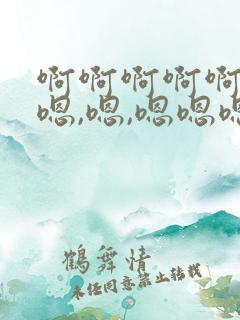 啊啊啊啊啊
嗯,嗯,嗯嗯嗯
鹤舞情
未经同意禁止转载